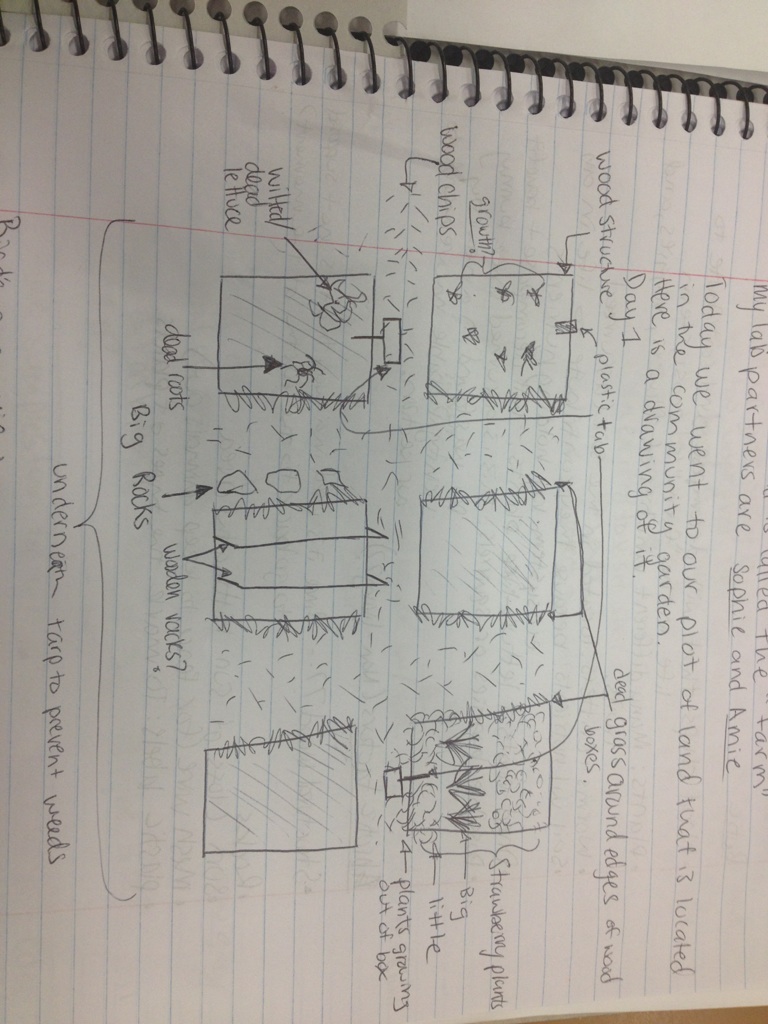 is called the "farm"
my lab partners are Sophie and Amie
Today we went to our plot of land that is located
in the community garden.
Here is a drawing of it.
Day 1
plastic tab
wood structure
dead grass around edges of wood
boxes.
growth?
wood chips
Strawberry plants
Big
little
plants growing
out of box
wilted/
dead
lettuce
dead roots
Big Rocks
wooden racks?
underneath tarp to prevent weeds